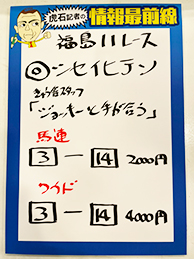 虎石記者の
情報最前線
福島11レース
◎シセイヒテン
きゅう舎スタッフ
「ジョッキーと手が合う」
馬連
3 ― 14 2000円
ワイド
3 ― 14 4000円